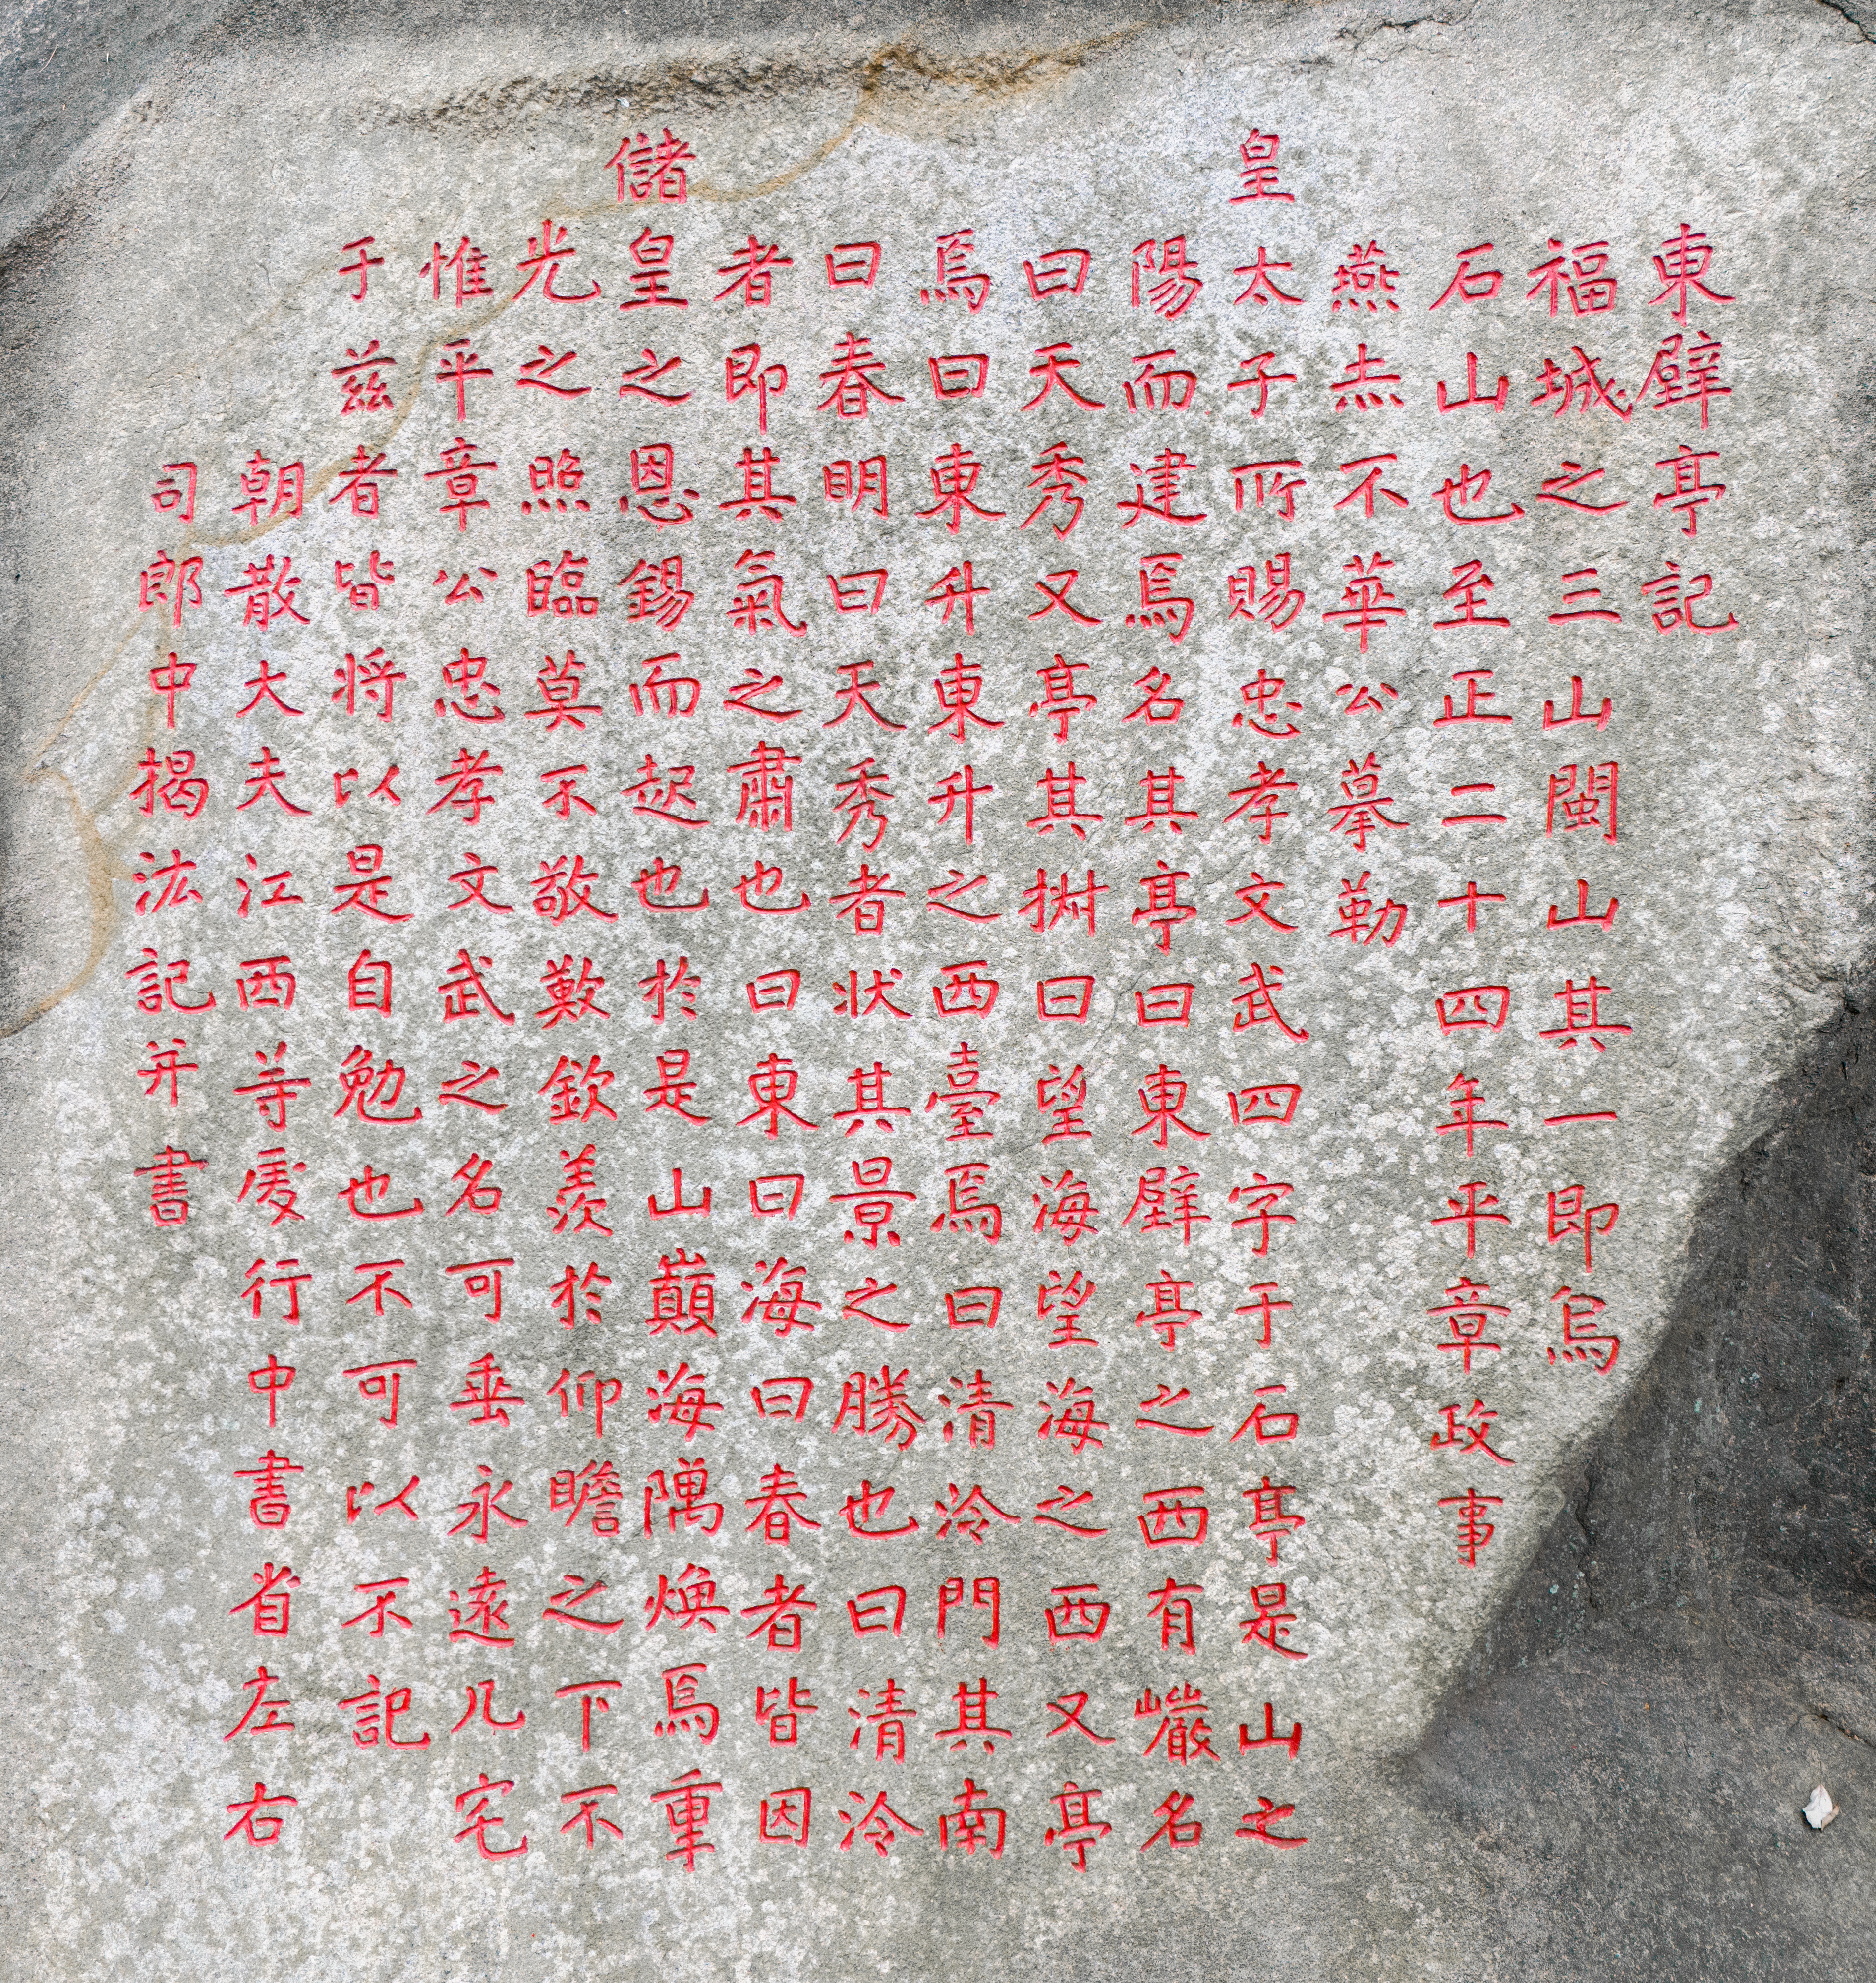 東壁亭記
福城之三山閩山其一即烏
石山也至正二十四年平章政事
燕赤不華公摹勒
皇太子所賜忠孝文武四字于石亭是山之
陽而建焉名其亭曰東壁亭之西有巖名
曰天秀又亭其曰望海望海之西又亭
焉曰東升東升之西臺焉曰清泠門其南
曰春明曰天秀者状其景之勝也曰清泠
者即其氣之肅也曰東曰海曰春者皆因
儲皇之恩錫而起也於是山巔海隅煥焉重
光之照臨莫不敬歎欽羨於仰瞻之下不
惟平章公忠孝文武之名可垂永遠凡宅
于兹者皆将以是自勉也不可以不記
朝散大夫江西等處行中書省左右
司郎中揭汯記并書